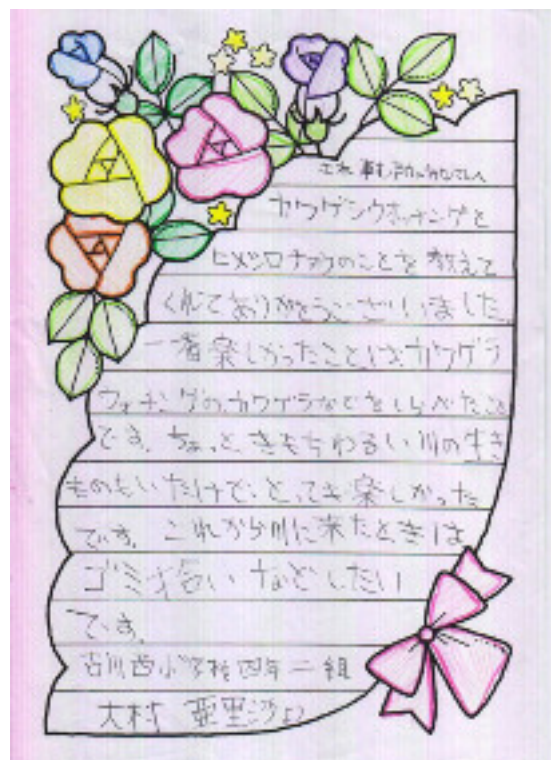 カワゲラウォッチングと
ヒメシロチョウのことを教えて
くれてありがとうございました。
一番楽しかったことは、カワゲラ
ウォッチングのカワゲラなどをしらべたこと
です。ちょっと、きもちわるい川の生き
ものもいたけで、とっても楽しかった
です。これから川に来たときは
ゴミ拾いなどしたい
です。
古川西小学校四年二組
大村 亜里沙より